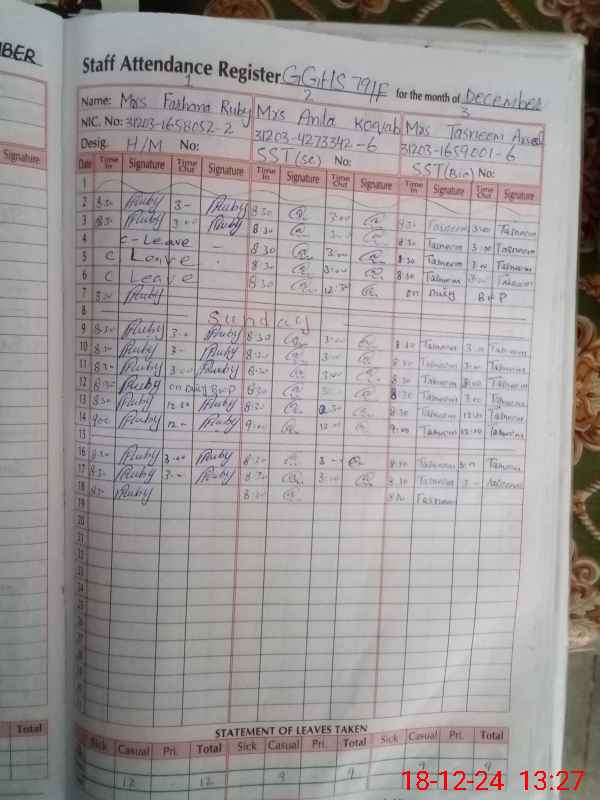 BER
Staff Attendance Register GGHS 79/F for the month of December
1 2 3
Name: Mrs Farhana Ruby Mrs Anila Kokab Mrs Tasneem
NIC. No: 31203-1658052-2 31203-4273342-6 31203-1659001-6
Desig. H/M No: SST(SC) No: SST(Bio) No:
Signature Date Time In Signature Time Out Signature Time In Signature Time Out Signature Time In Signature Time Out Signature
1
2 8:30 Ruby 3- Ruby 8:30 3:00 8:30 Tasneem 3:00 Tasneem
3 8:30 Ruby 3:00 Ruby 8:30 3:00 8:30 Tasneem 3:00 Tasneem
4 C-Leave - 8:30 3:00 8:30 Tasneem 3:00 Tasneem
5 C Leave 8:30 3:00 8:30 Tasneem 3:00 Tasneem
6 C Leave 8:30 12:30 on Duty BWP
7 8:00 Ruby
8 Sunday
9 8:30 Ruby 3:- Ruby 8:30 3:00 8:30 Tasneem 3:00 Tasneem
10 8:30 Ruby 3- Ruby 8:30 3:00 8:30 Tasneem 3:00 Tasneem
11 8:30 Ruby 3:00 Ruby 8:30 3:00 8:30 Tasneem Tasneem
12 8:30 Ruby on Duty BWP 8:30 8:30 Tasneem 3:00 Tasneem
13 8:30 Ruby 12:30 Ruby 8:30 8:30 Tasneem Tasneem
14 9:00 Ruby 12- Ruby 9:00 12:00 9:00 Tasneem 12:00 Tasneem
15
16 8:30 Ruby 3:00 Ruby 8:30 3-- 8:30 Tasneem 3:- Tasneem
17 8:30 Ruby 3:- Ruby 8:30 3:00 8:30 Tasneem 3- Tasneem
18 8:30 Ruby 8:30 Tasneem
19
20
21
22
23
24
25
26
27
28
29
30
31
STATEMENT OF LEAVES TAKEN
Total Sick Casual Pri. Total Sick Casual Pri. Total Sick Casual Pri. Total
12 - 12 9 9 9 9
18-12-24 13:27